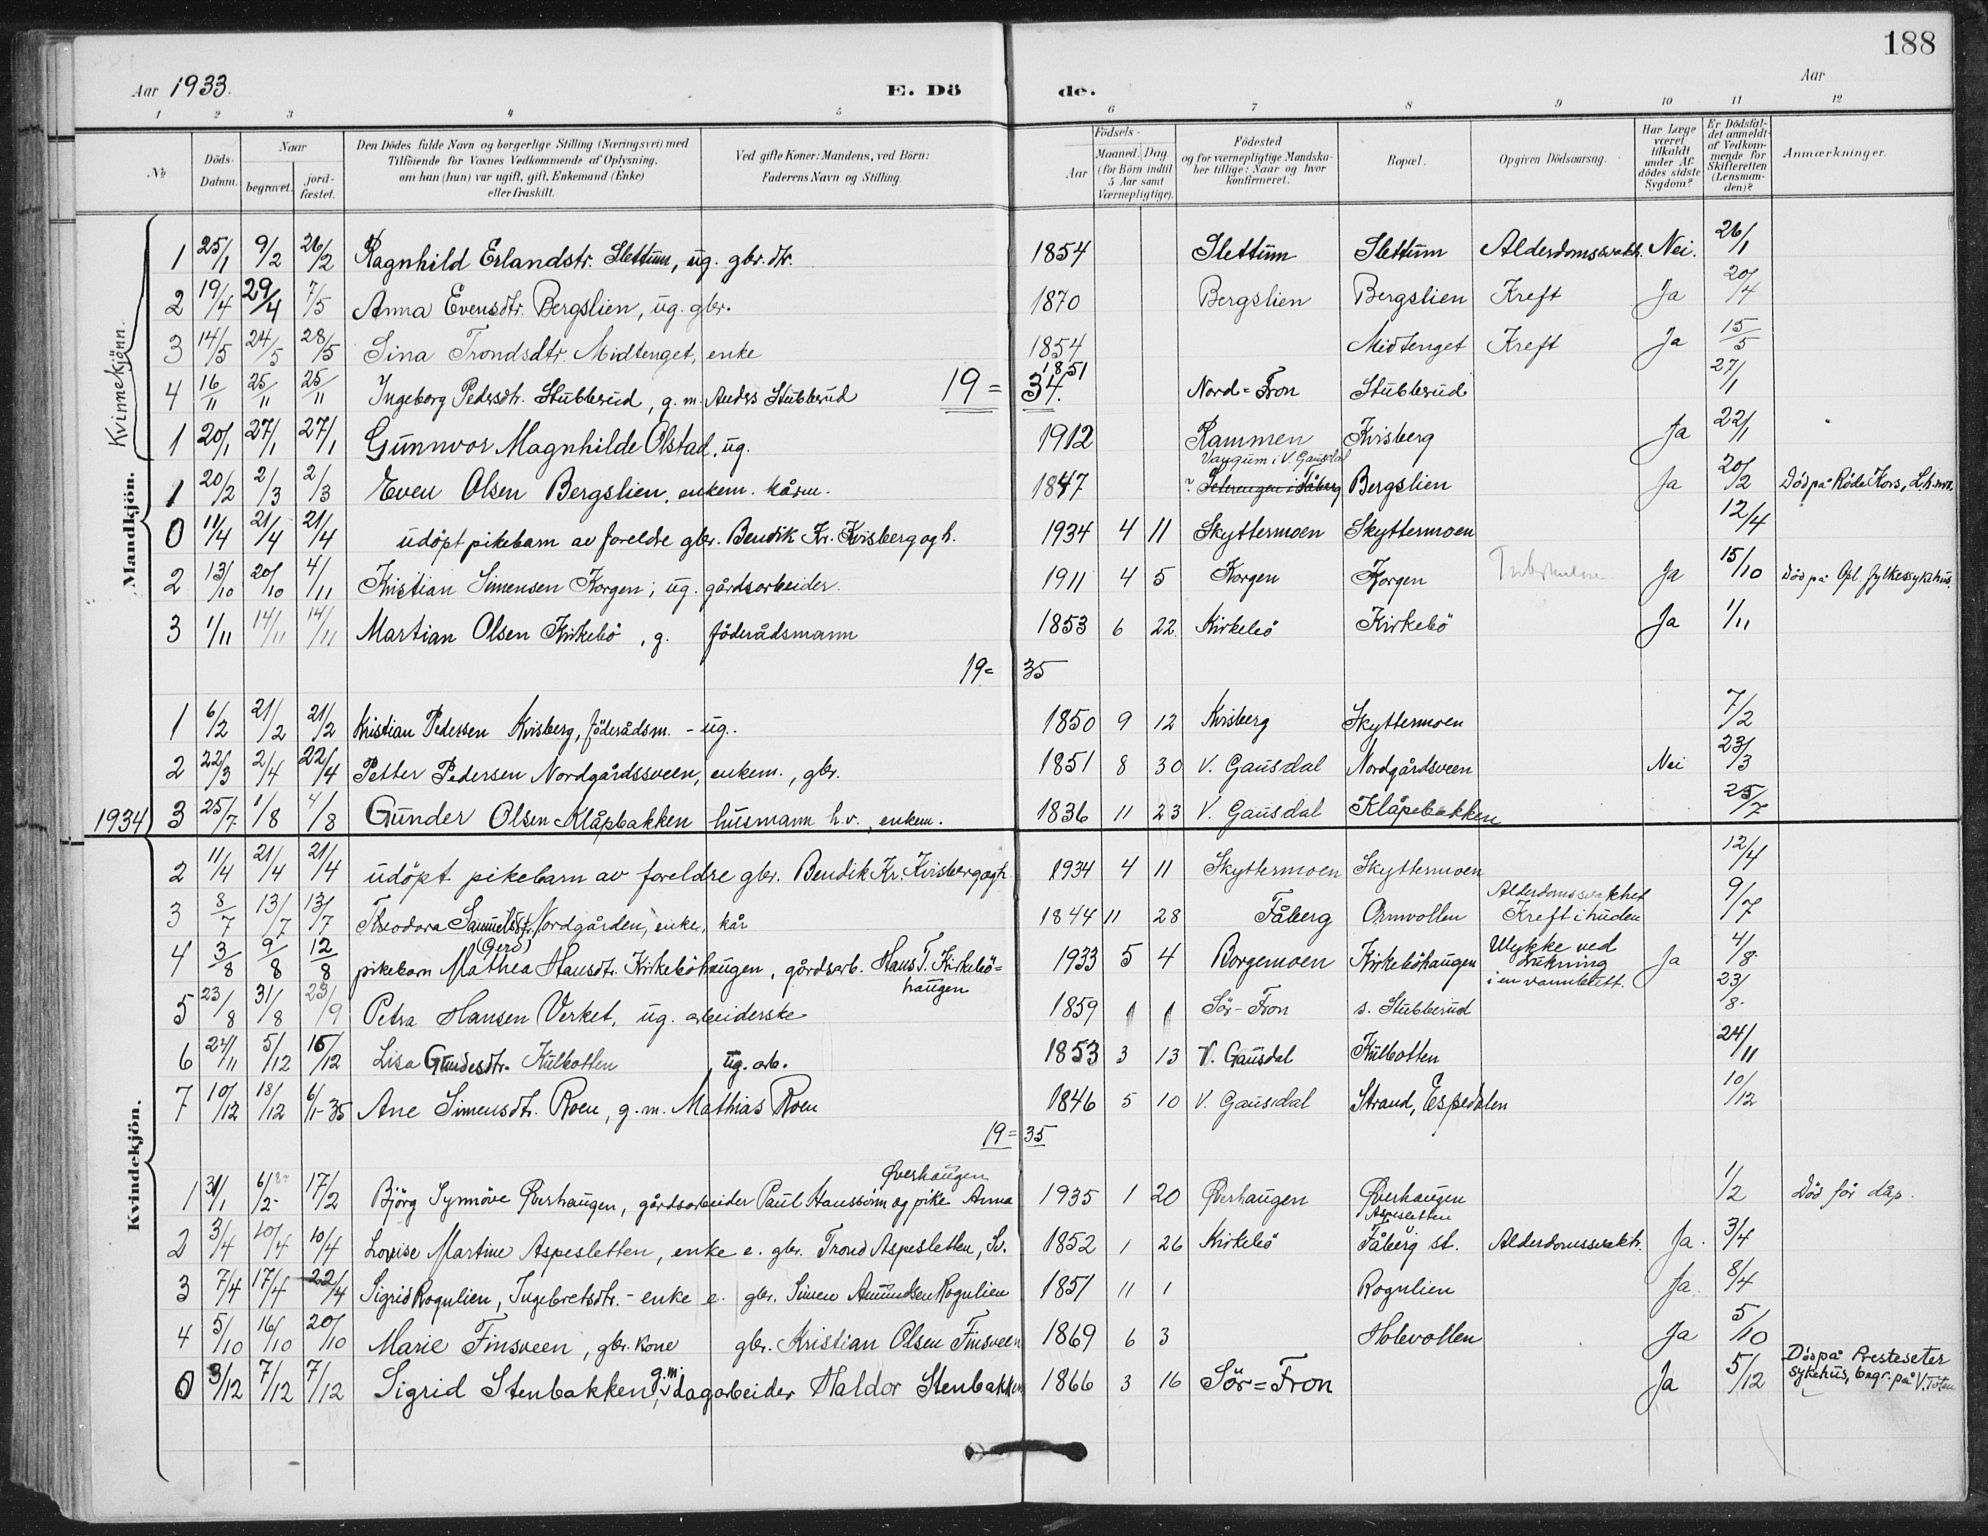 188
Aar 1933.
E. Dö de.
Aar
1 2 3 4 5 6 7 8 9 10 11 12
№
Döds-Datum.
Naar
begravet.
jordfæstet.
Den Dödes fulde Navn og borgerlige Stilling (Næringsvei) med Tilföiende for Voxnes Vedkommende af Oplysning, om han (hun) var ugift, gift, Enkemand (Enke) eller fraskilt.
Ved gifte Koner: Mandens, ved Börn: Faderens Navn og Stilling.
Födsels-
Aar
Maaned. Dag
(for Börn indtil 5 Aar samt Værnepligtige).
Födested
og for værnepligtige Mandskaber tillige: Naar og hvor konfirmeret.
Bopæl.
Opgiven Dödsaarsag.
Har Læge været tilkaldt under Afdödes sidste Sygdom?
Er Dödsfaldet anmeldt af Vedkommende for Skifteretten (Lensmanden)?
Anmærkninger.
Kvinnekjönn.
1 25/1 9/2 26/2 Ragnhild Erlandstr. Slettum, ug. gbr. dtr. 1854 Slettum Slettum Alderdomssvakh. Nei. 26/1
2 19/4 29/4 7/5 Anna Evensdtr. Bergslien, ug. gbr. 1870 Bergslien Bergslien Kreft Ja 20/4
3 14/5 24/5 28/5 Sina Trondsdtr. Midtenget, enke 1854 Midtenget Kreft Ja 15/5
4 16/11 25/11 25/11 Ingeborg Pedersdtr. Stubberud, g. m. Anders Stubberud 1851 Nord-Fron Stubberud 27/1
19 = 34.
1 20/1 27/1 27/1 Gunnvor Magnhilde Olstad, ug. 1912 Rammen Kvisberg Ja 22/1
Mandkjön.
1 20/2 2/3 2/3 Even Olsen Bergslien, enkem. kårm. 1847 Vangum i V. Gausdal Bergslien Ja 20/2 Död på Röde Kors, L.h.mr.
0 11/4 21/4 21/4 udöpt pikebarn av foreldre gbr. Bendik Kr. Kvisberg og h. 1934 4 11 Skyttermoen Skyttermoen 12/4
2 13/10 20/10 4/11 Kristian Simensen Korgen; ug. gårdsarbeider. 1911 4 5 Korgen Korgen Ja 15/10 Död på Opl. fylkessykehus.
3 1/11 14/11 14/11 Martian Olsen Kirkebö, g. föderådsmann 1853 6 22 Kirkebö Kirkebö Ja 1/11
19 = 35
1 6/2 21/2 21/2 Kristian Pedersen Kvisberg, föderådsm. - ug. 1850 9 12 Kvisberg Skyttermoen 7/2
2 22/3 2/4 22/4 Petter Pedersen Nordgårdssveen, enkem., gbr. 1851 8 30 V. Gausdal Nordgårdsveen Nei 23/3
1934 3 25/7 1/8 4/8 Gunder Olsen Klåpbakken husmann h.v., enkem. 1836 11 23 V. Gausdal Klåpebakken 25/7
Kvindekjön.
2 11/4 21/4 21/4 udöpt pikebarn av foreldre gbr. Bendik Kr. Kvisberg og h. 1934 4 11 Skyttermoen Skyttermoen 12/4
3 8/7 13/7 13/7 Theodora Samuelsdtr. Nordgården, enke, kår 1844 11 28 Fåberg Ormvollen Alderdomssvakhet Kreft i huden 9/7
4 3/8 9/8 12/8 pikebarn (Gerd) Mathea Hansdtr. Kirkeböhaugen, gårdsarb. Hans T. Kirkebö=haugen 1933 5 4 Borgemoen Kirkeböhaugen Ulykke ved drukning i en vannbøtt. Ja 4/8
5 23/8 31/8 23/9 Petra Hansen Verket, ug. arbeiderske 1859 Sör-Fron s. Stubberud 23/8
6 24/11 5/12 15/12 Lisa Gundesdtr. Kulbotten ug. arb. 1853 3 13 V. Gausdal Kulbotten 24/11
7 10/12 18/12 6/1-35 Ane Simensdtr. Roen, g. m. Mathias Roen 1846 5 10 V. Gausdal Strand, Espedalen 10/12
19 = 35
1 31/1 6/2 17/2 Björg Synnöve Øverhaugen, gårdsarbeider Paul Hanssönn og pike Anna Øverhaugen 1935 1 20 Øverhaugen Øverhaugen 1/2 Död för dåp.
2 3/4 10/4 10/4 Lovise Martine Aspesletten, enke e. gbr. Trond Aspesletten, Sv. 1852 1 26 Kirkebö Aspesletten Fåberg st. Alderdomssvakh. Ja. 3/4
3 7/4 17/4 22/4 Sigrid Rognlien, Ingebretsdtr. - enke e. gbr. Simen Amundsen Rognlien 1851 11 1 Rognlien Ja. 8/4
4 5/10 16/10 20/10 Marie Finsveen, gbr. kone gbr. Kristian Olsen Finsveen 1869 6 3 Holevollen Ja 5/10
0 3/12 7/12 7/12 Sigrid Stenbakken, g.m. dagarbeider Haldor Stenbakken 1866 3 16 Sör=Fron Ja 5/12 Död på Presteseter sykehus, begr. på V. Toten